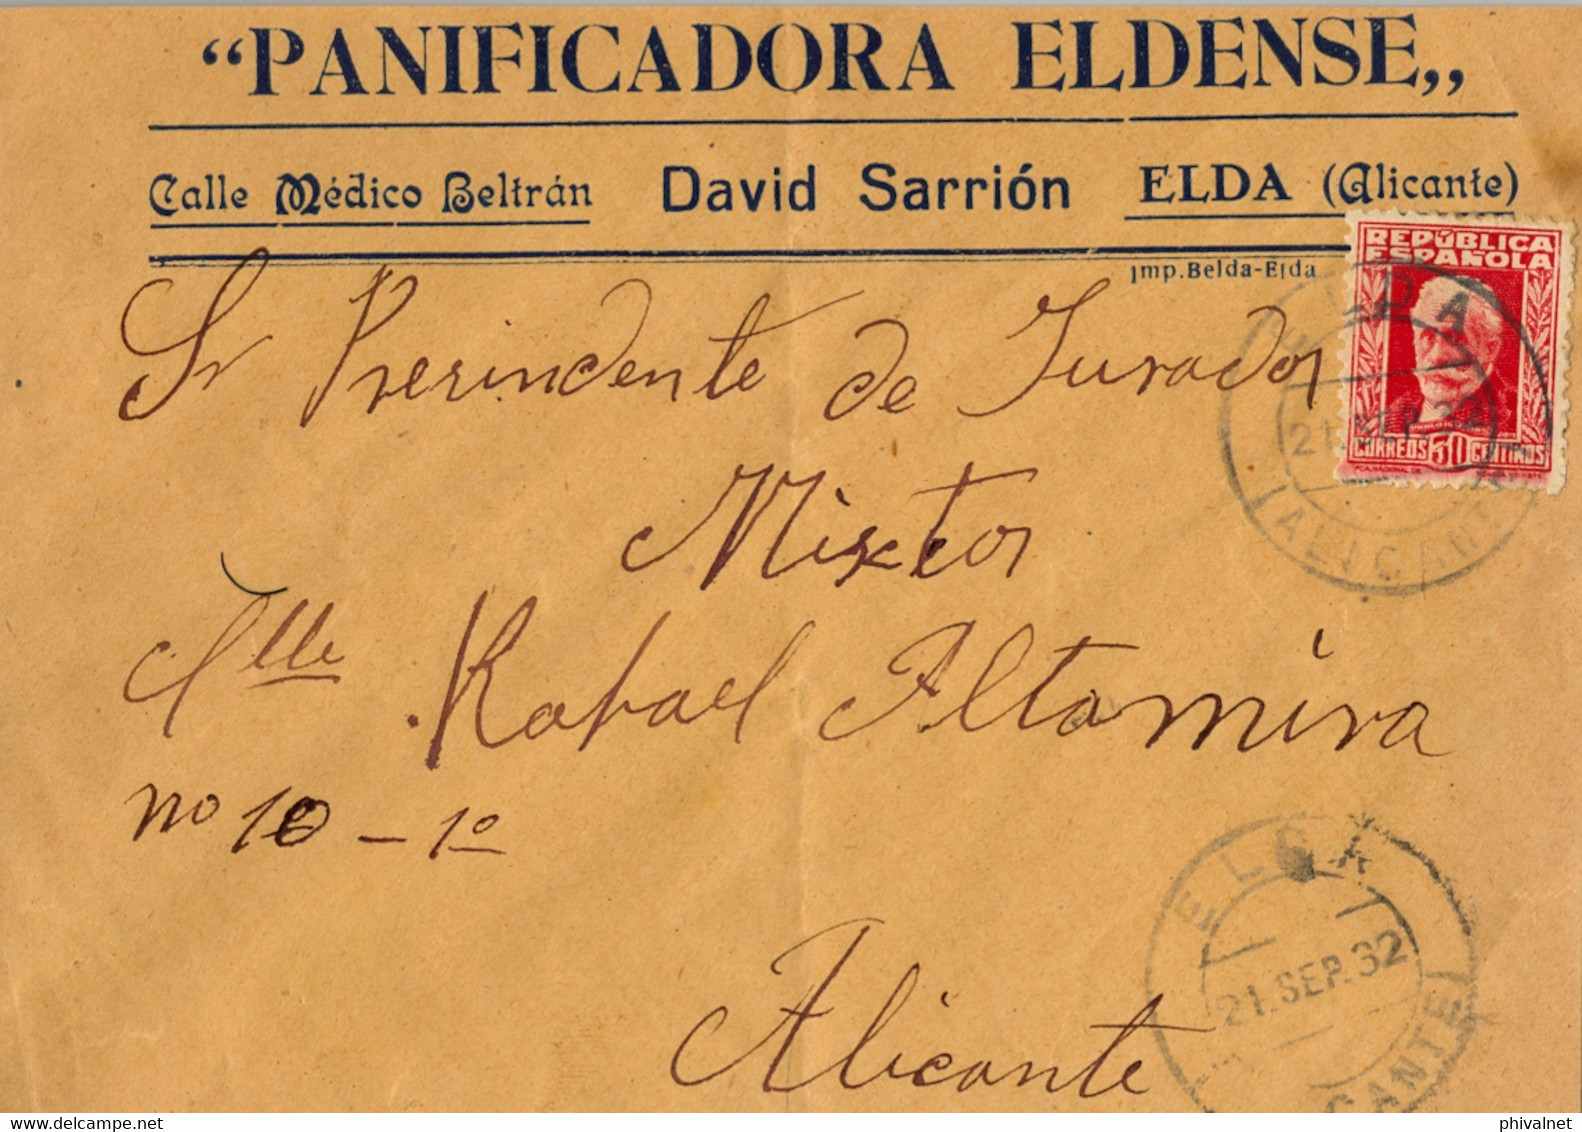 “PANIFICADORA ELDENSE„
Calle Médico Beltrán David Sarrión ELDA (Alicante)
Imp. Belda-Elda
REPÚBLICA
ESPAÑOLA
CORREOS 30 CENTIMOS
ELDA
21.SEP.32
(ALICANTE)
Sr Prerindente de Jurados
Mixtos
Clle Rafael Altamira
no 10 - 1º
Alicante
ELDA
21.SEP.32
CANTE)
phivalnet